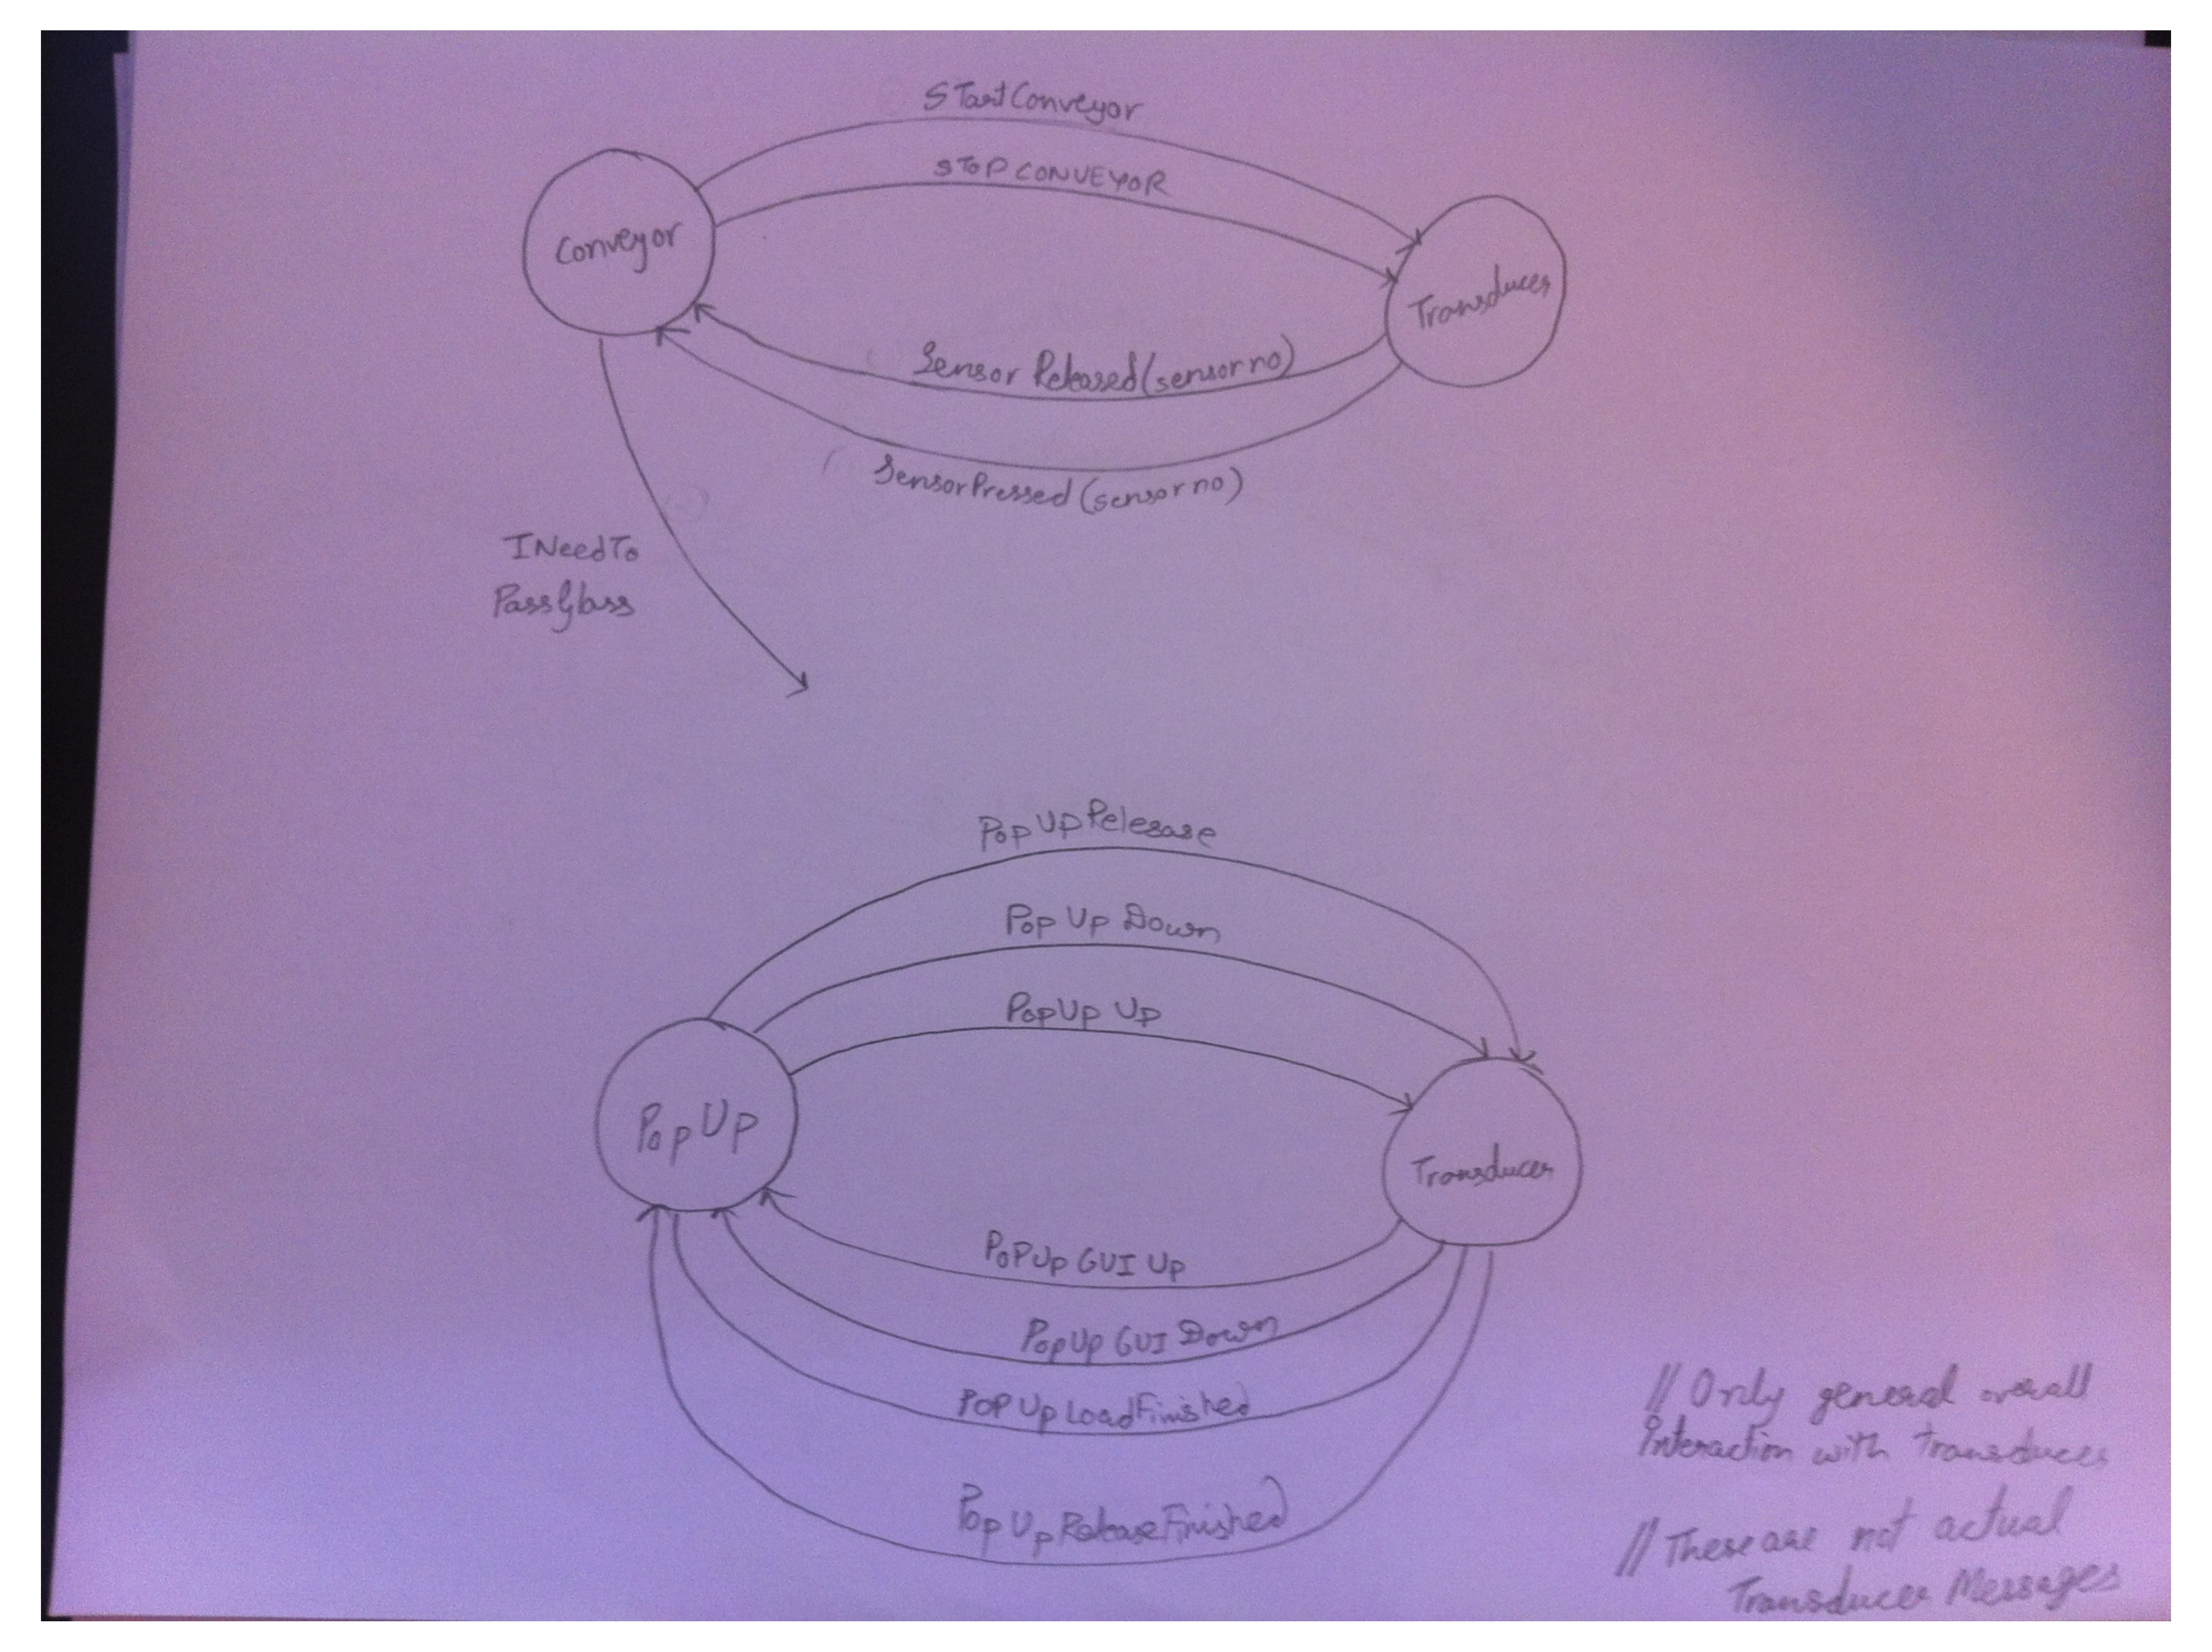 STartConveyor
STOPCONVEYOR
Conveyor
Transducer
Sensor Released(sensorno)
SensorPressed (sensorno)
INeedTo
PassGlass
PopUpRelesase
PopUp Down
PopUp Up
PopUp
Transducer
PoPUp GUI Up
PopUp GUI Down
POPUpLoadFinished
PopUpReleaseFinished
// Only general overall
Interaction with transducer
// These are not actual
Transducer Messages